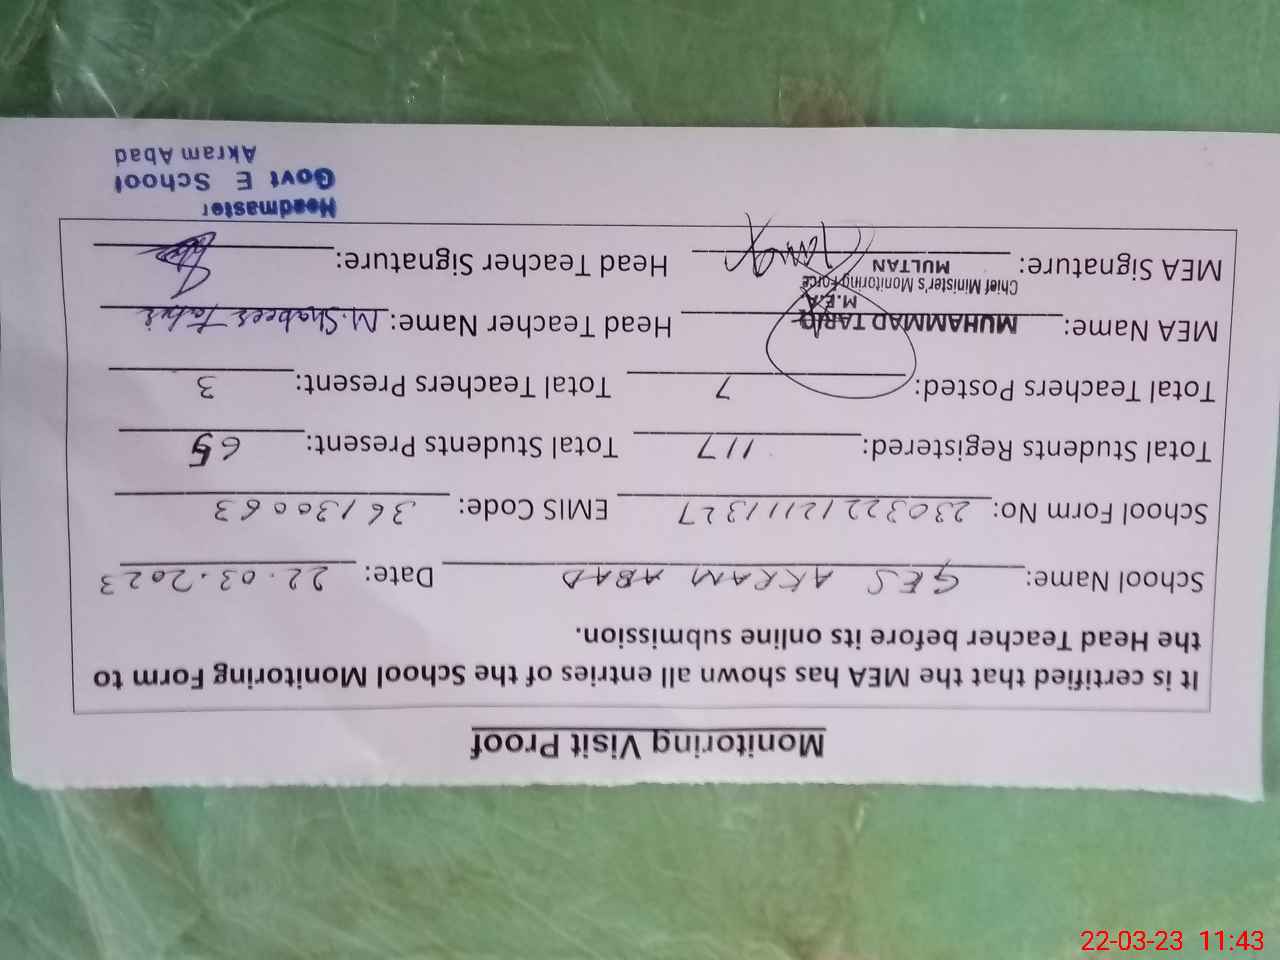 Monitoring Visit Proof
It is certified that the MEA has shown all entries of the School Monitoring Form to
the Head Teacher before its online submission.
School Name: GES AKRAM ABAD Date: 22.03.2023
School Form No: 230322121111327 EMIS Code: 36130063
Total Students Registered: 117 Total Students Present: 65
Total Teachers Posted: 7 Total Teachers Present: 3
MEA Name: MUHAMMAD TARIQ Head Teacher Name: M. Shabeer Tahir
M.E.A
Chief Minister's Monitoring Force
MULTAN
MEA Signature: Head Teacher Signature:
Headmaster
Govt E School
Akram Abad
22-03-23 11:43